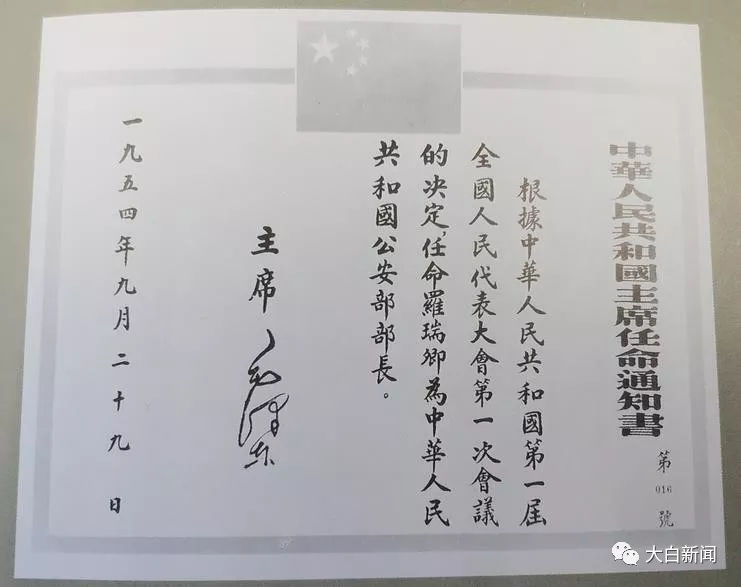 中華人民共和國主席任命通知書
第016號
根據中華人民共和國第一屆
全國人民代表大會第一次會議
的决定，任命羅瑞卿為中華人民
共和國公安部部長。
主席 毛澤东
一九五四年九月二十九日
大白新闻